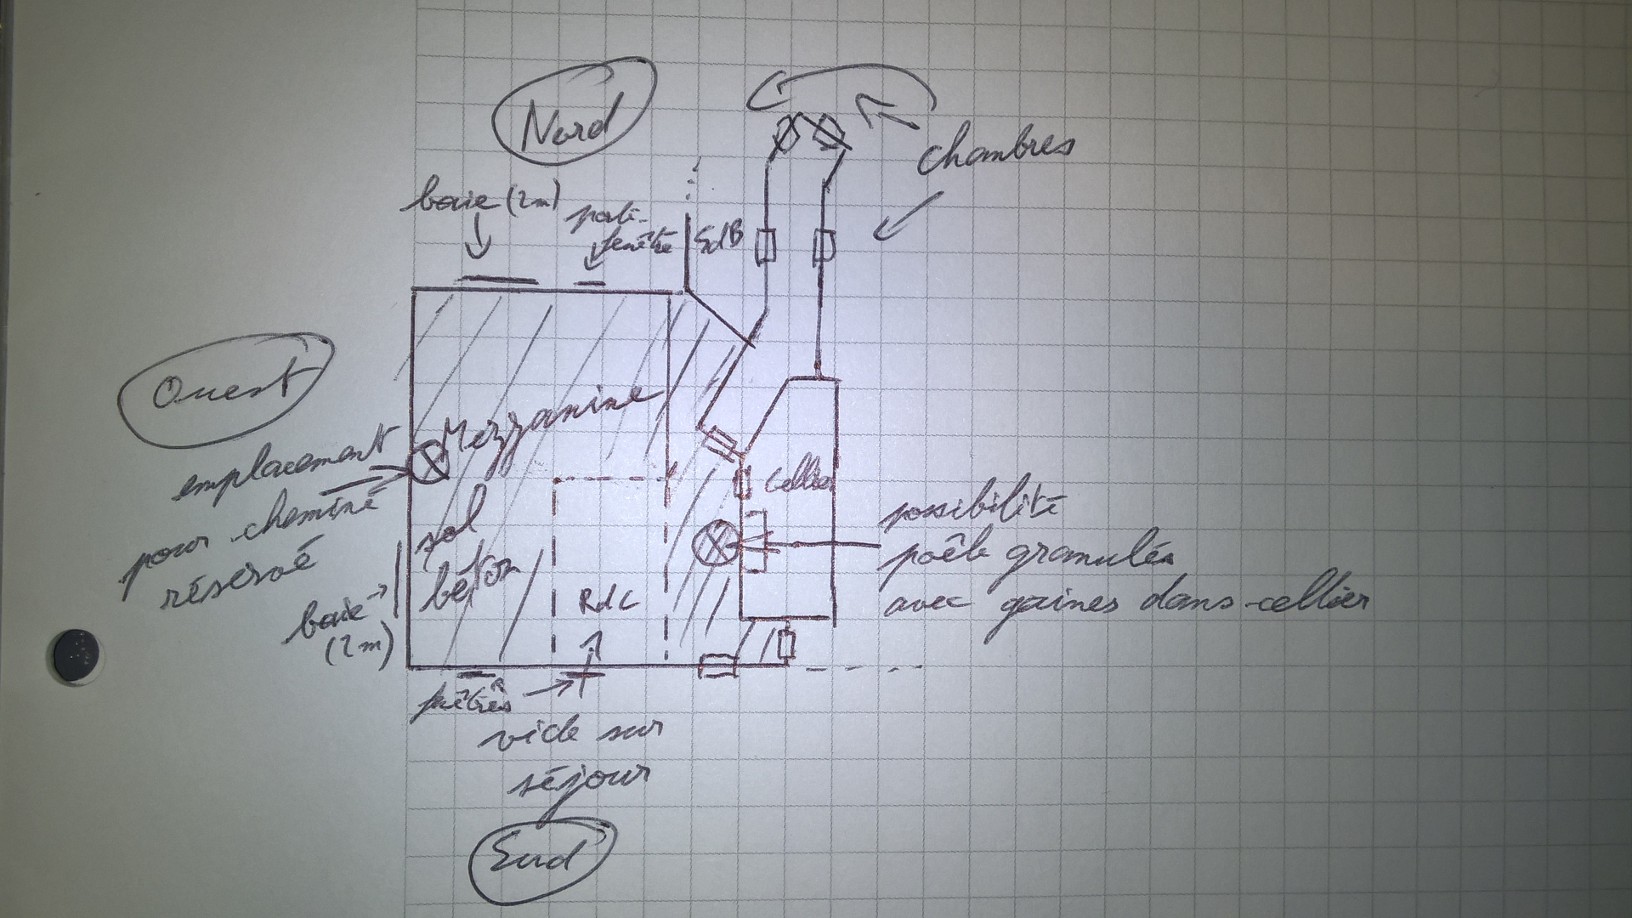 Nord
chambres
baie (2m)
porte-
fenêtre
SdB
Ouest
Mezzanine
emplacement
pour cheminé
réservé
sol
béton
cellier
possibilité
poêle granulés
avec gaines dans cellier
RdC
baie
(2m)
fenêtres
vide sur
séjour
Sud